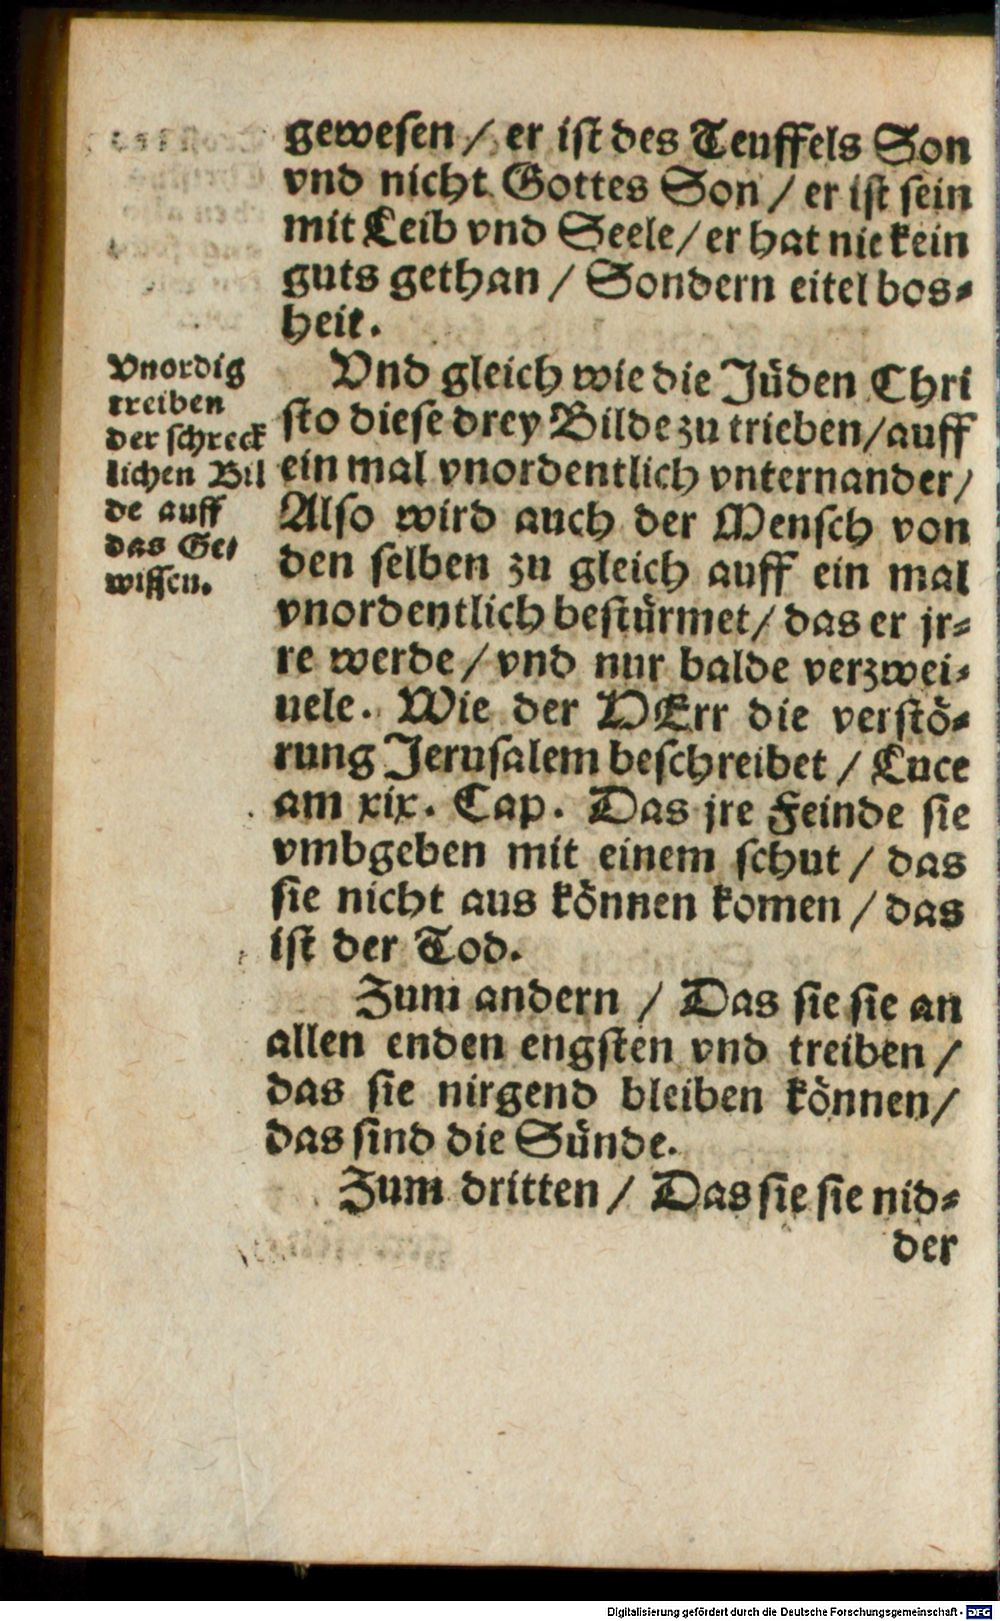 gewesen / er ist des Teuffels Son
vnd nicht Gottes Son / er ist sein
mit Leib vnd Seele / er hat nie kein
guts gethan / Sondern eitel bos⸗
heit.
Vnordig
treiben
der schreck
lichen Bil
de auff
das Ge⸗
wissen.
Vnd gleich wie die Jüden Chri
sto diese drey Bilde zu trieben / auff
ein mal vnordentlich vnternander /
Also wird auch der Mensch von
den selben zu gleich auff ein mal
vnordentlich bestürmet / das er jr⸗
re werde / vnd nur balde verzwei⸗
uele. Wie der HErr die verstö⸗
rung Jerusalem beschreibet / Luce
am xix. Cap. Das jre Feinde sie
vmbgeben mit einem schut / das
sie nicht aus können komen / das
ist der Tod.
Zum andern / Das sie sie an
allen enden engsten vnd treiben /
das sie nirgend bleiben können /
das sind die Sünde.
Zum dritten / Das sie sie nid⸗
der
Digitalisierung gefördert durch die Deutsche Forschungsgemeinschaft - DFG